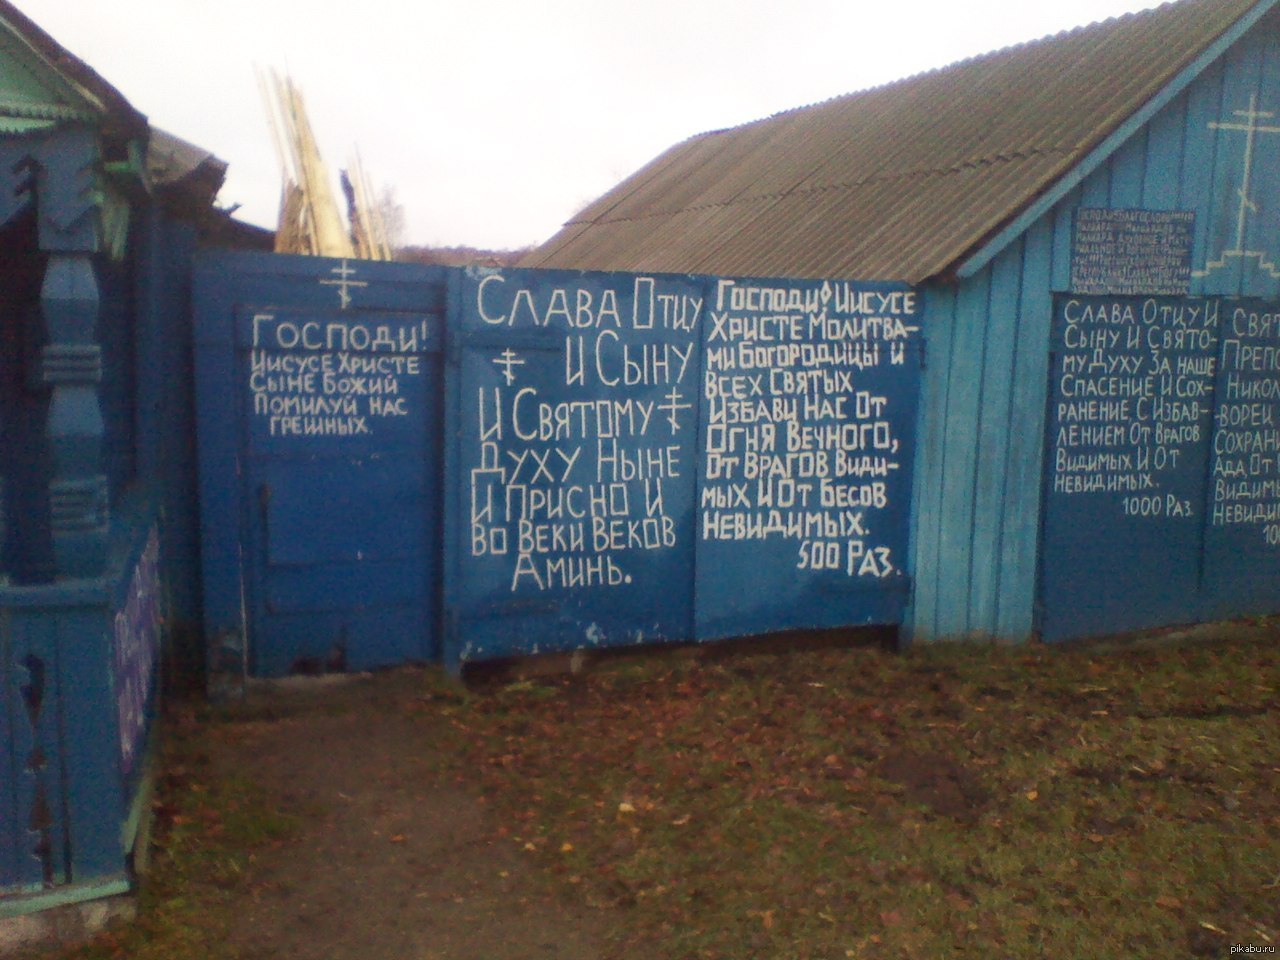 Господи!
Иисусе Христе
Сыне Божий
Помилуй нас
грешных.
Слава Отцу
И Сыну
И Святому
Духу Ныне
И Присно И
Во Веки Веков
Аминь.
Господи! Иисусе
Христе Молитва-
ми Богородицы и
Всех Святых
Избави Нас От
Огня Вечного,
От врагов Види-
мых И От Бесов
Невидимых.
500 Раз.
Господи Благослови!!!!!
Слава Отцу И
Сыну И Свято-
му Духу За наше
Спасение И Сох-
ранение С Избав-
лением От Врагов
Видимых И От
Невидимых.
1000 Раз
Свят
Преп
Никол
ворец
Сохран
Ада От
Видим
Невидим
pikabu.ru